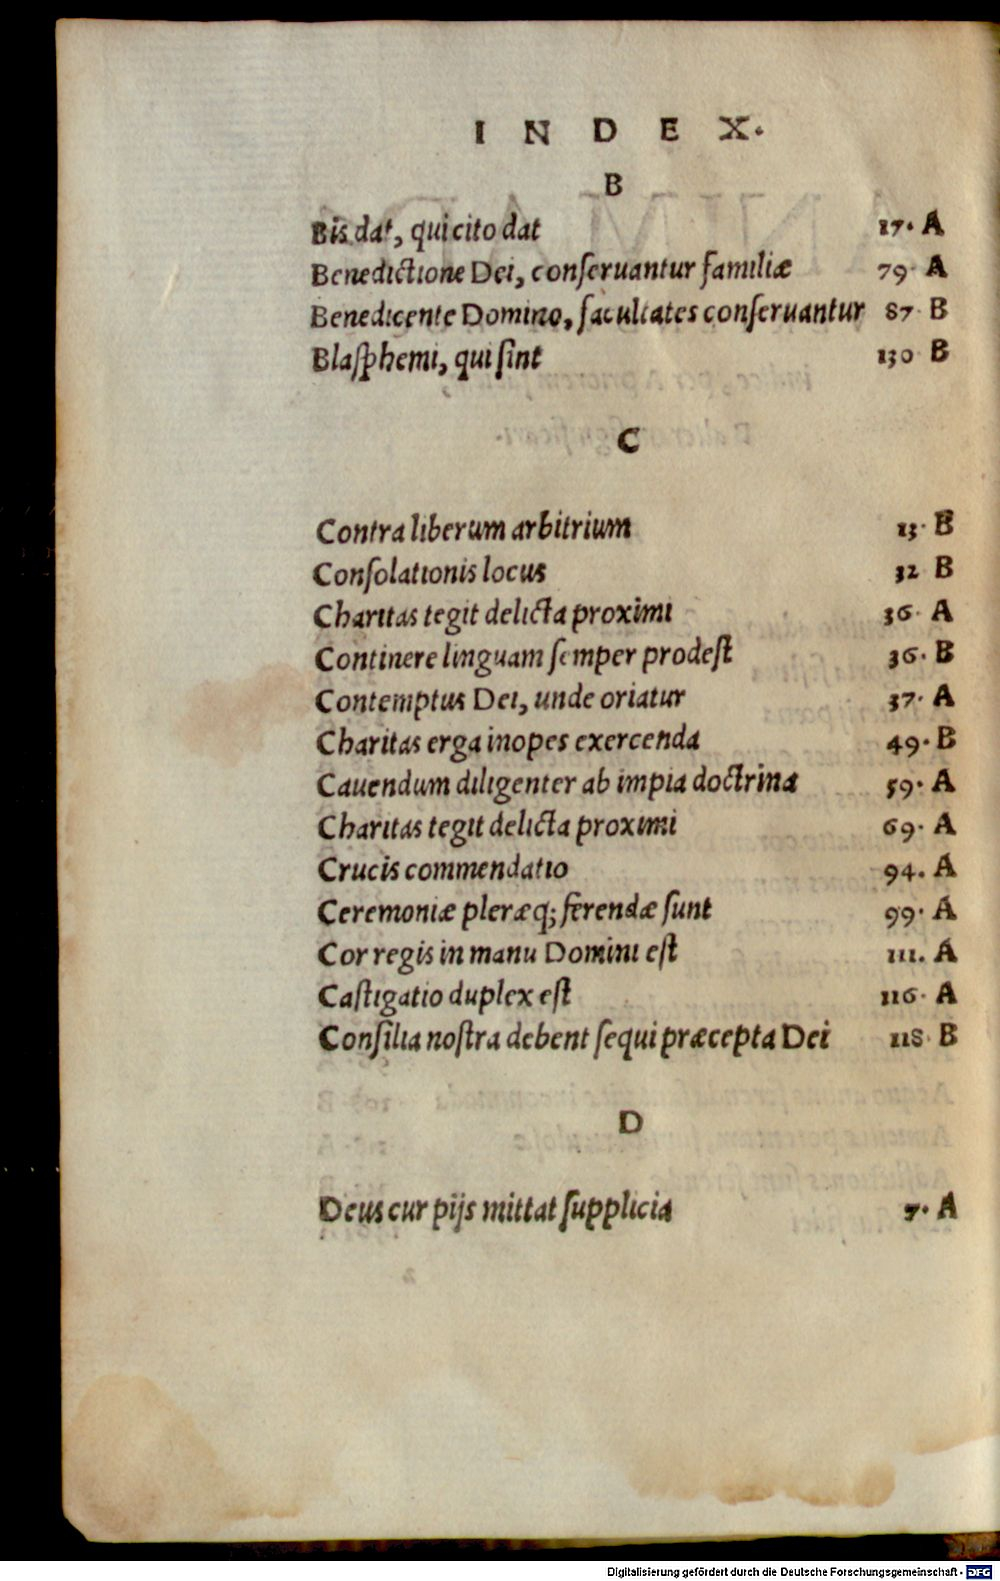 INDEX.
B
Bis dat, qui cito dat 17. A
Benedictione Dei, conſeruantur familiæ 79. A
Benedicente Domino, facultates conſeruantur 87. B
Blaſphemi, qui ſint 130 B
C
Contra liberum arbitrium 13. B
Conſolationis locus 32 B
Charitas tegit delicta proximi 36. A
Continere linguam ſemper prodeſt 36. B
Contemptus Dei, unde oriatur 37. A
Charitas erga inopes exercenda 49. B
Cauendum diligenter ab impia doctrina 59. A
Charitas tegit delicta proximi 69. A
Crucis commendatio 94. A
Ceremoniæ pleræq; ferendæ ſunt 99. A
Cor regis in manu Domini eſt 111. A
Caſtigatio duplex eſt 116. A
Conſilia noſtra debent ſequi præcepta Dei 118. B
D
Deus cur pijs mittat ſupplicia 7. A
Digitalisierung gefördert durch die Deutsche Forschungsgemeinschaft - DFG